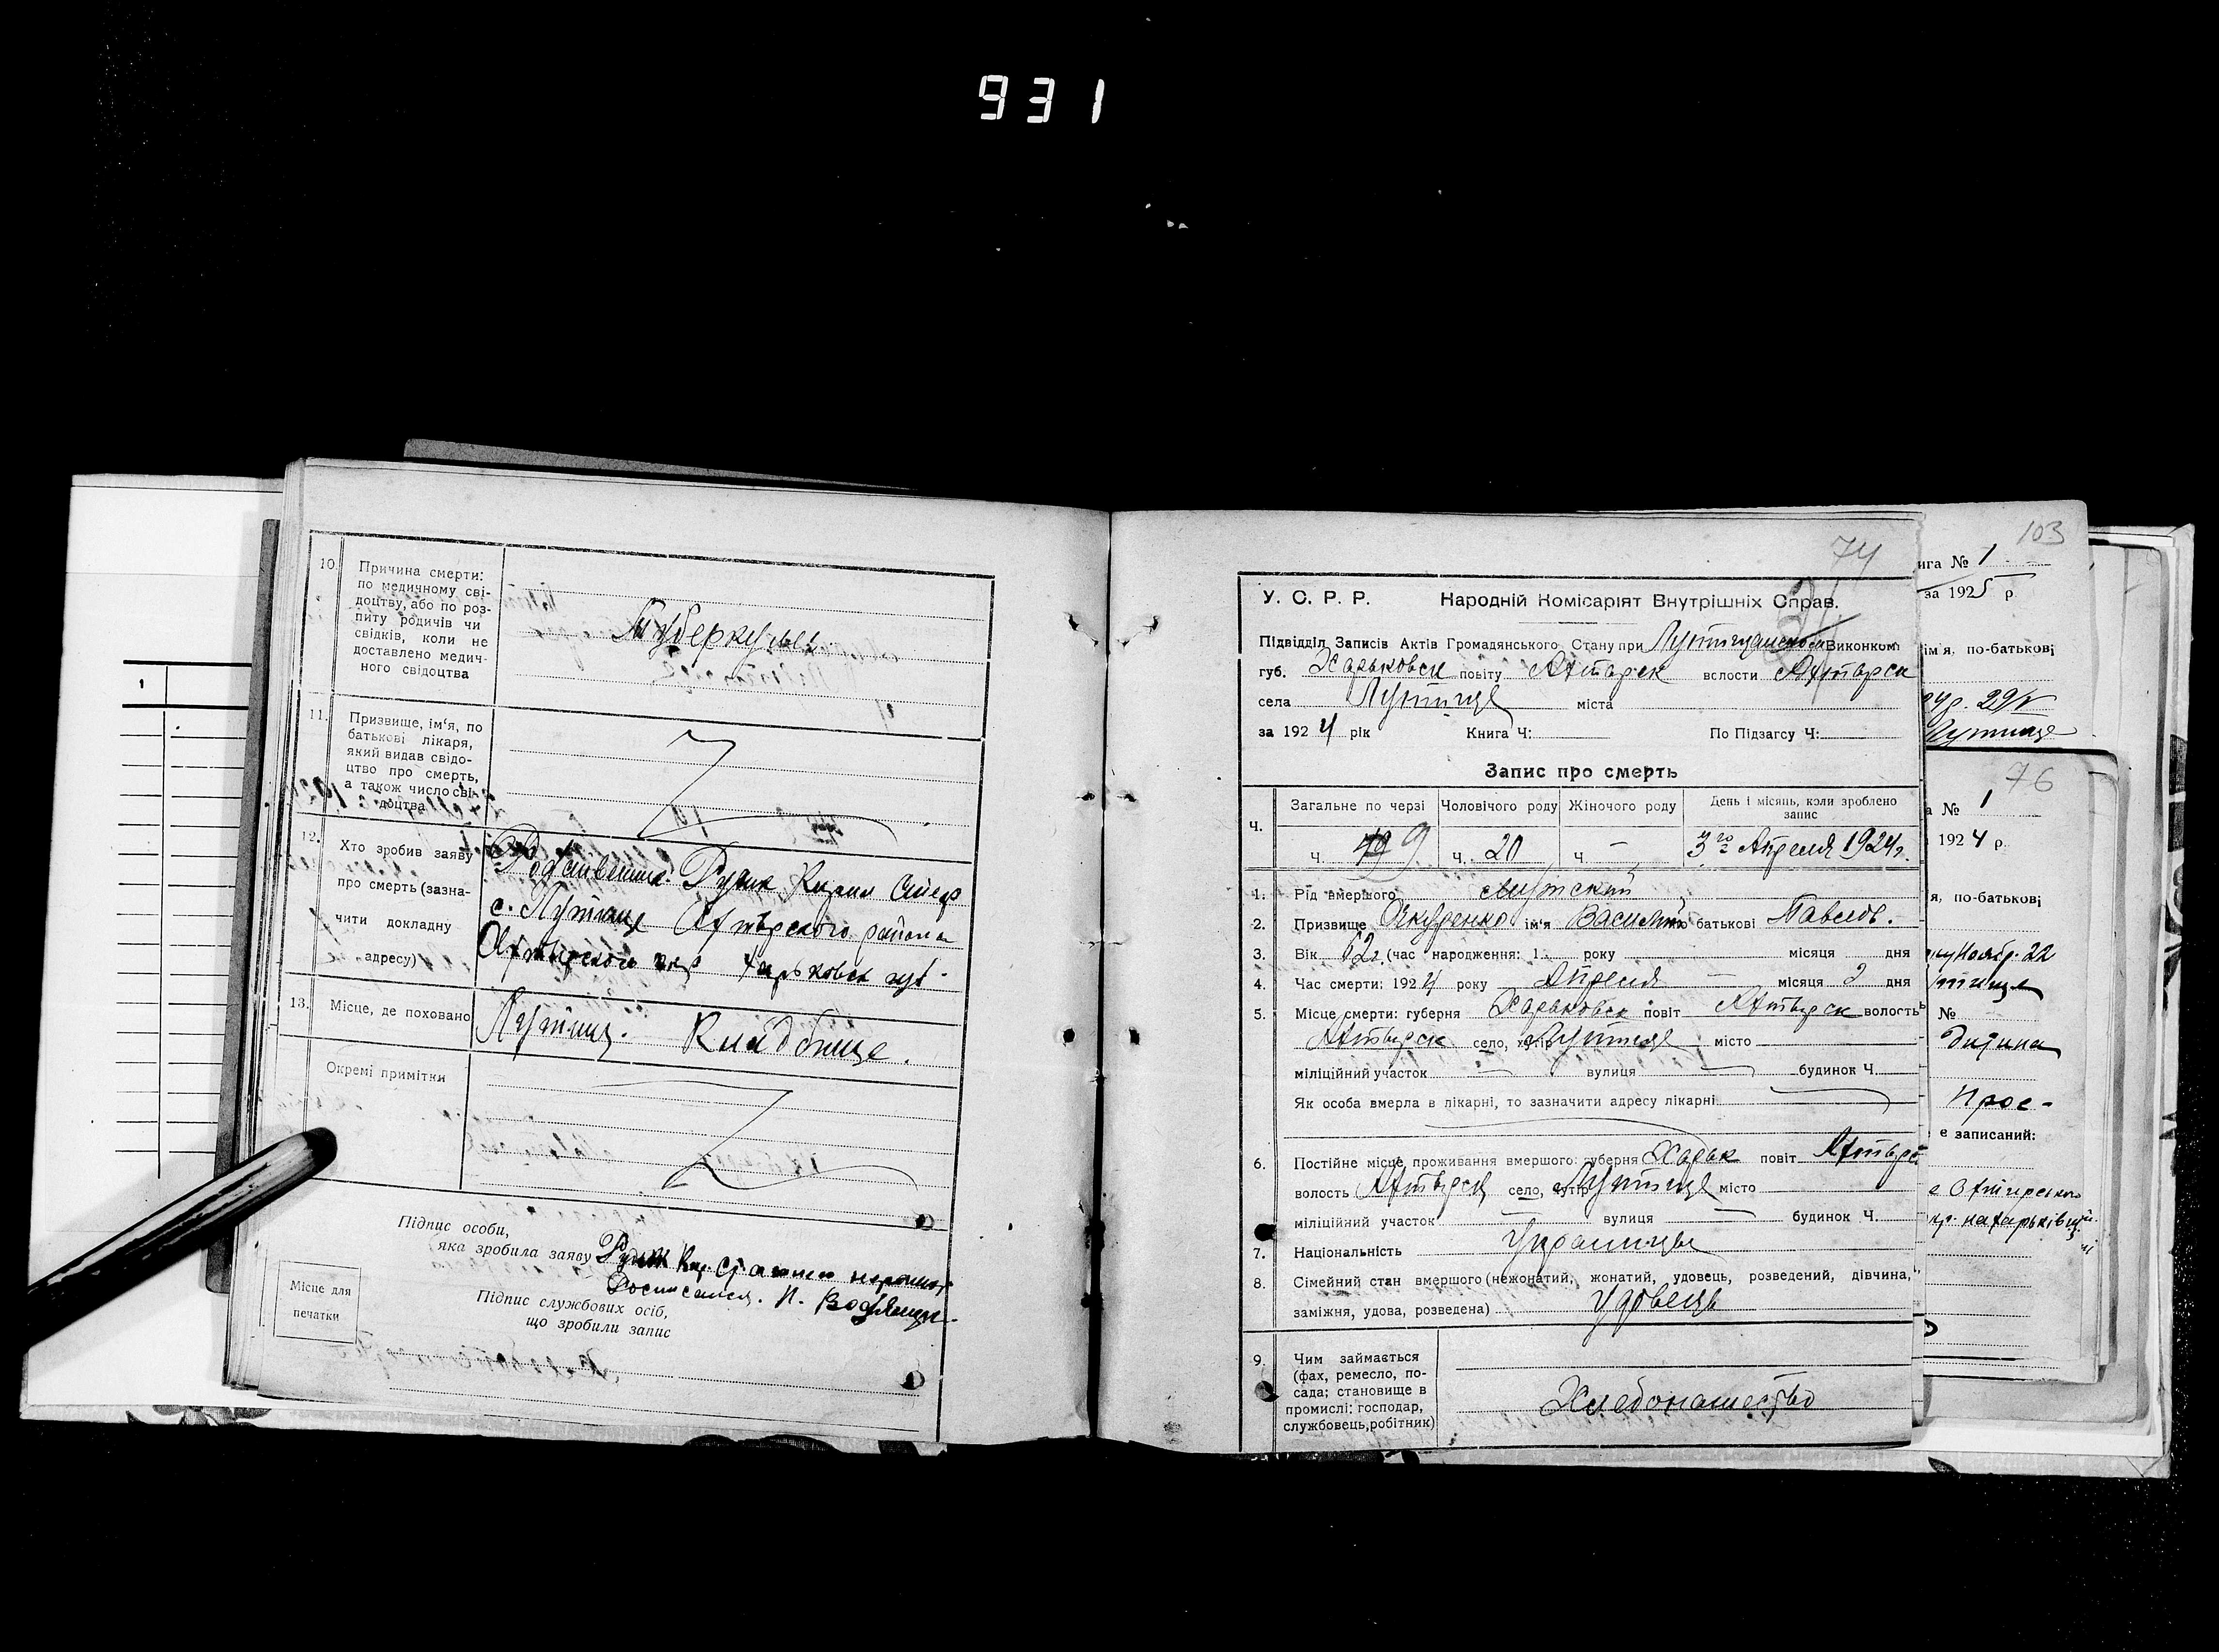 931
10.
Причина смерти:
по медичному сві-
доцтву, або по роз-
питу родичів чи
свідків, коли не
доставлено медич-
ного свідоцтва
Туберкульоз
11.
Призвище, ім'я, по
батькові лікаря,
який видав свідо-
цтво про смерть,
а також число сві-
доцтва
12.
Хто зробив заяву
про смерть (зазна-
чити докладну
адресу)
Родственик Рудик Кирил
с. Лутище Ахтырского района
Ахтырского окр Харьковск губ.
13.
Місце, де поховано
Лутищ. Кладбище.
Окремі примітки
Підпис особи,
яка зробила заяву Рудик
Росписался. И.
Підпис службових осіб,
що зробили запис
Місце для
печатки
74
У. С. Р. Р. Народній Комісаріят Внутрішніх Справ.
Підвідділ Записів Актів Громадянського Стану при Лутищанском Виконком
губ. Харьковск повіту Ахтырск волости Ахтырск
села Лутище міста
за 1924 рік Книга Ч: По Підзагсу Ч:
Запис про смерть
Ч.
Загальне по черзі Чоловічого роду Жіночого роду День і місяць, коли зроблено
запис
Ч. 9 Ч. 20 Ч. — 3го Апреля 1924г.
1. Рід вмершого Мужской
2. Призвище Очкуренко ім'я Василий по батькові Павлов.
3. Вік 62г. (час народження: 1 року місяця дня
4. Час смерти: 1924 року Апреля — місяця 2 дня
5. Місце смерти: губерня Харьковск повіт Ахтырск волость
Ахтырск село, хутір Лутище місто
міліційний участок — вулиця — будинок Ч.
Як особа вмерла в лікарні, то зазначити адресу лікарні
6. Постійне місце проживання вмершого: губерня Харьк повіт Ахтырс
волость Ахтырск село, хутір Лутище місто
міліційний участок — вулиця — будинок Ч.
7. Національність Украинцы
8. Сімейний стан вмершого (нежонатий, жонатий, удовець, розведений, дівчина,
заміжня, удова, розведена) Удовець
9. Чим займається
(фах, ремесло, по-
сада; становище в
промислі: господар,
службовець, робітник)
Хлебопашество
103
ига № 1
за 1925 р
ім'я, по-батькові
Лутище
76
а № 1
1924 р.
я, по-батькові
Ноябр. 22
№
Прос-
е записаний:
1